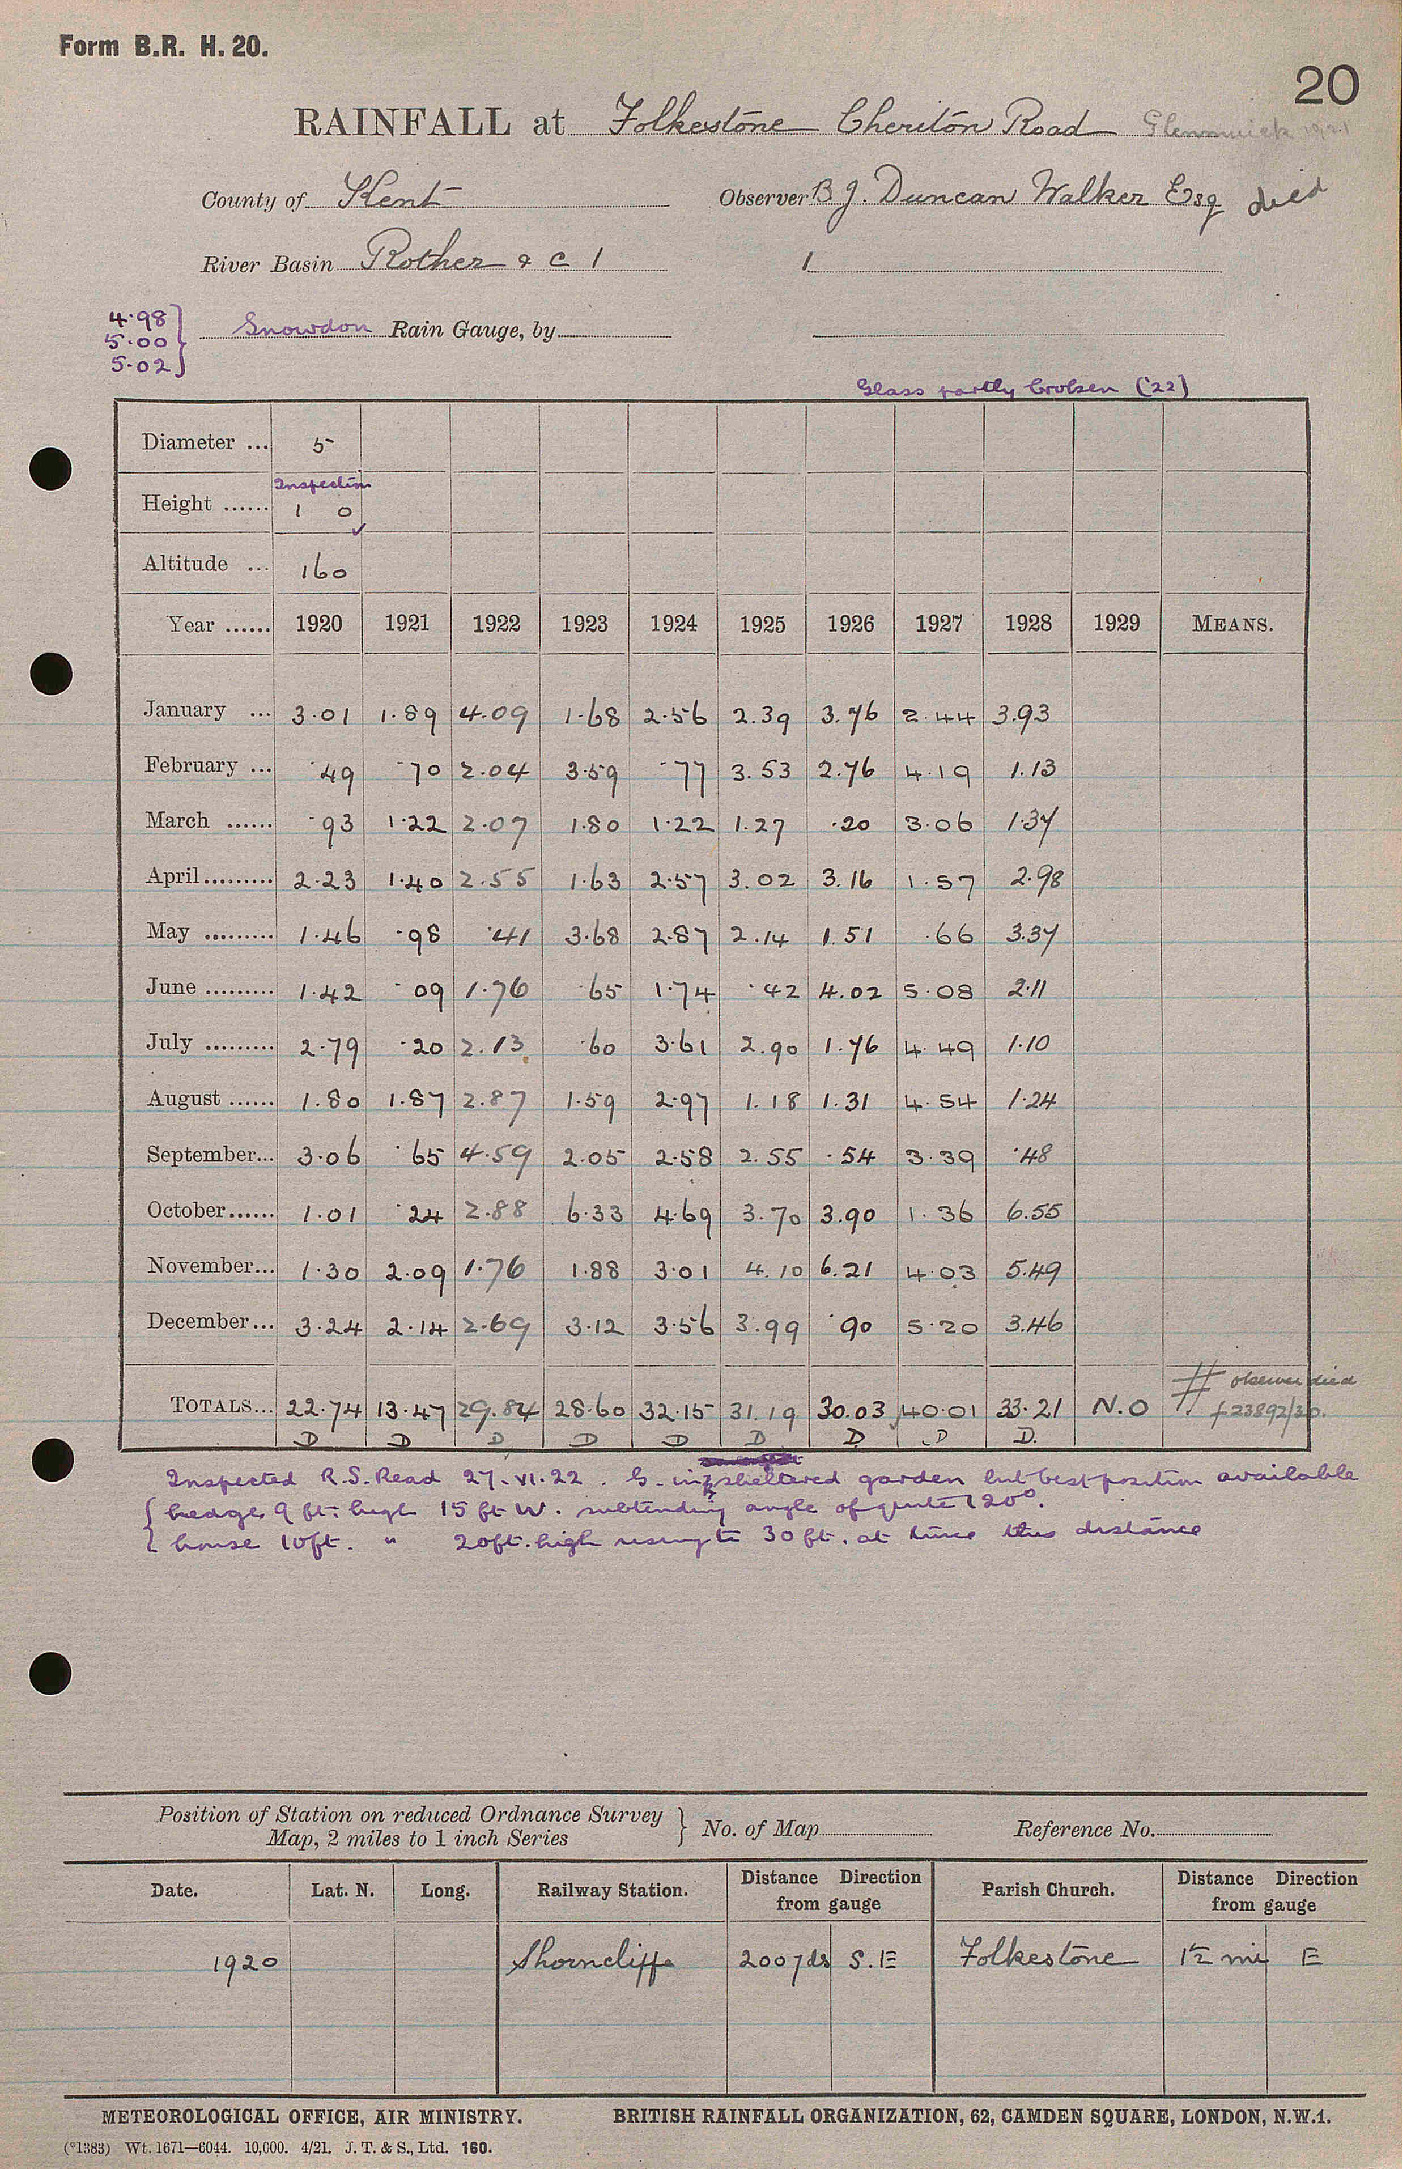 Form B.R. H. 20.
20
RAINFALL at Folkestone Cheriton Road 1921
County of Kent Observer B J. Duncan Walker Esq died
River Basin Rother & C 1 1
4.98
5.00
5.02
Snowdon Rain Gauge, by
Glass partly broken ('22)
Diameter ... 5
Inspection
Height ...... 1 0
Altitude ... 160
Year ...... 1920 1921 1922 1923 1924 1925 1926 1927 1928 1929 MEANS.
January ... 3.01 1.89 4.09 1.68 2.56 2.39 3.76 2.44 3.93
February ... .49 .70 2.04 3.59 .77 3.53 2.76 4.19 1.13
March ...... .93 1.22 2.07 1.80 1.22 1.27 .20 3.06 1.37
April......... 2.23 1.40 2.55 1.63 2.57 3.02 3.16 1.57 2.98
May ......... 1.46 .98 .41 3.68 2.87 2.14 1.51 .66 3.37
June ......... 1.42 .09 1.76 .65 1.74 .42 4.02 5.08 2.11
July ......... 2.79 .20 2.13 .60 3.61 2.90 1.76 4.49 1.10
August ...... 1.80 1.87 2.87 1.59 2.97 1.18 1.31 4.54 1.24
September... 3.06 .65 4.59 2.05 2.58 2.55 .54 3.39 .48
October...... 1.01 .24 2.88 6.33 4.69 3.70 3.90 1.36 6.55
November... 1.30 2.09 1.76 1.88 3.01 4.10 6.21 4.03 5.49
December... 3.24 2.14 2.69 3.12 3.56 3.99 .90 5.20 3.46
TOTALS... 22.74 13.47 29.84 28.60 32.15 31.19 30.03 40.01 33.21 N.O # observer died
f 23892/30.
D D D D D D D D D.
Inspected R.S. Read 27.VI.22. G. in sheltered garden but best position available
{ hedge 9 ft. high 15 ft W. subtending angle of quite 120°.
{ house 10ft. " 20ft. high rising to 30 ft. at twice this distance
Position of Station on reduced Ordnance Survey
Map, 2 miles to 1 inch Series } No. of Map Reference No.
Date. Lat. N. Long. Railway Station. Distance Direction from gauge Parish Church. Distance Direction from gauge
1920 Shorncliffe 200 yds S.E Folkestone 1½ mi E
METEOROLOGICAL OFFICE, AIR MINISTRY. BRITISH RAINFALL ORGANIZATION, 62, CAMDEN SQUARE, LONDON, N.W.1.
(*1383) Wt. 1671—6044. 10,000. 4/21. J. T. & S., Ltd. 160.